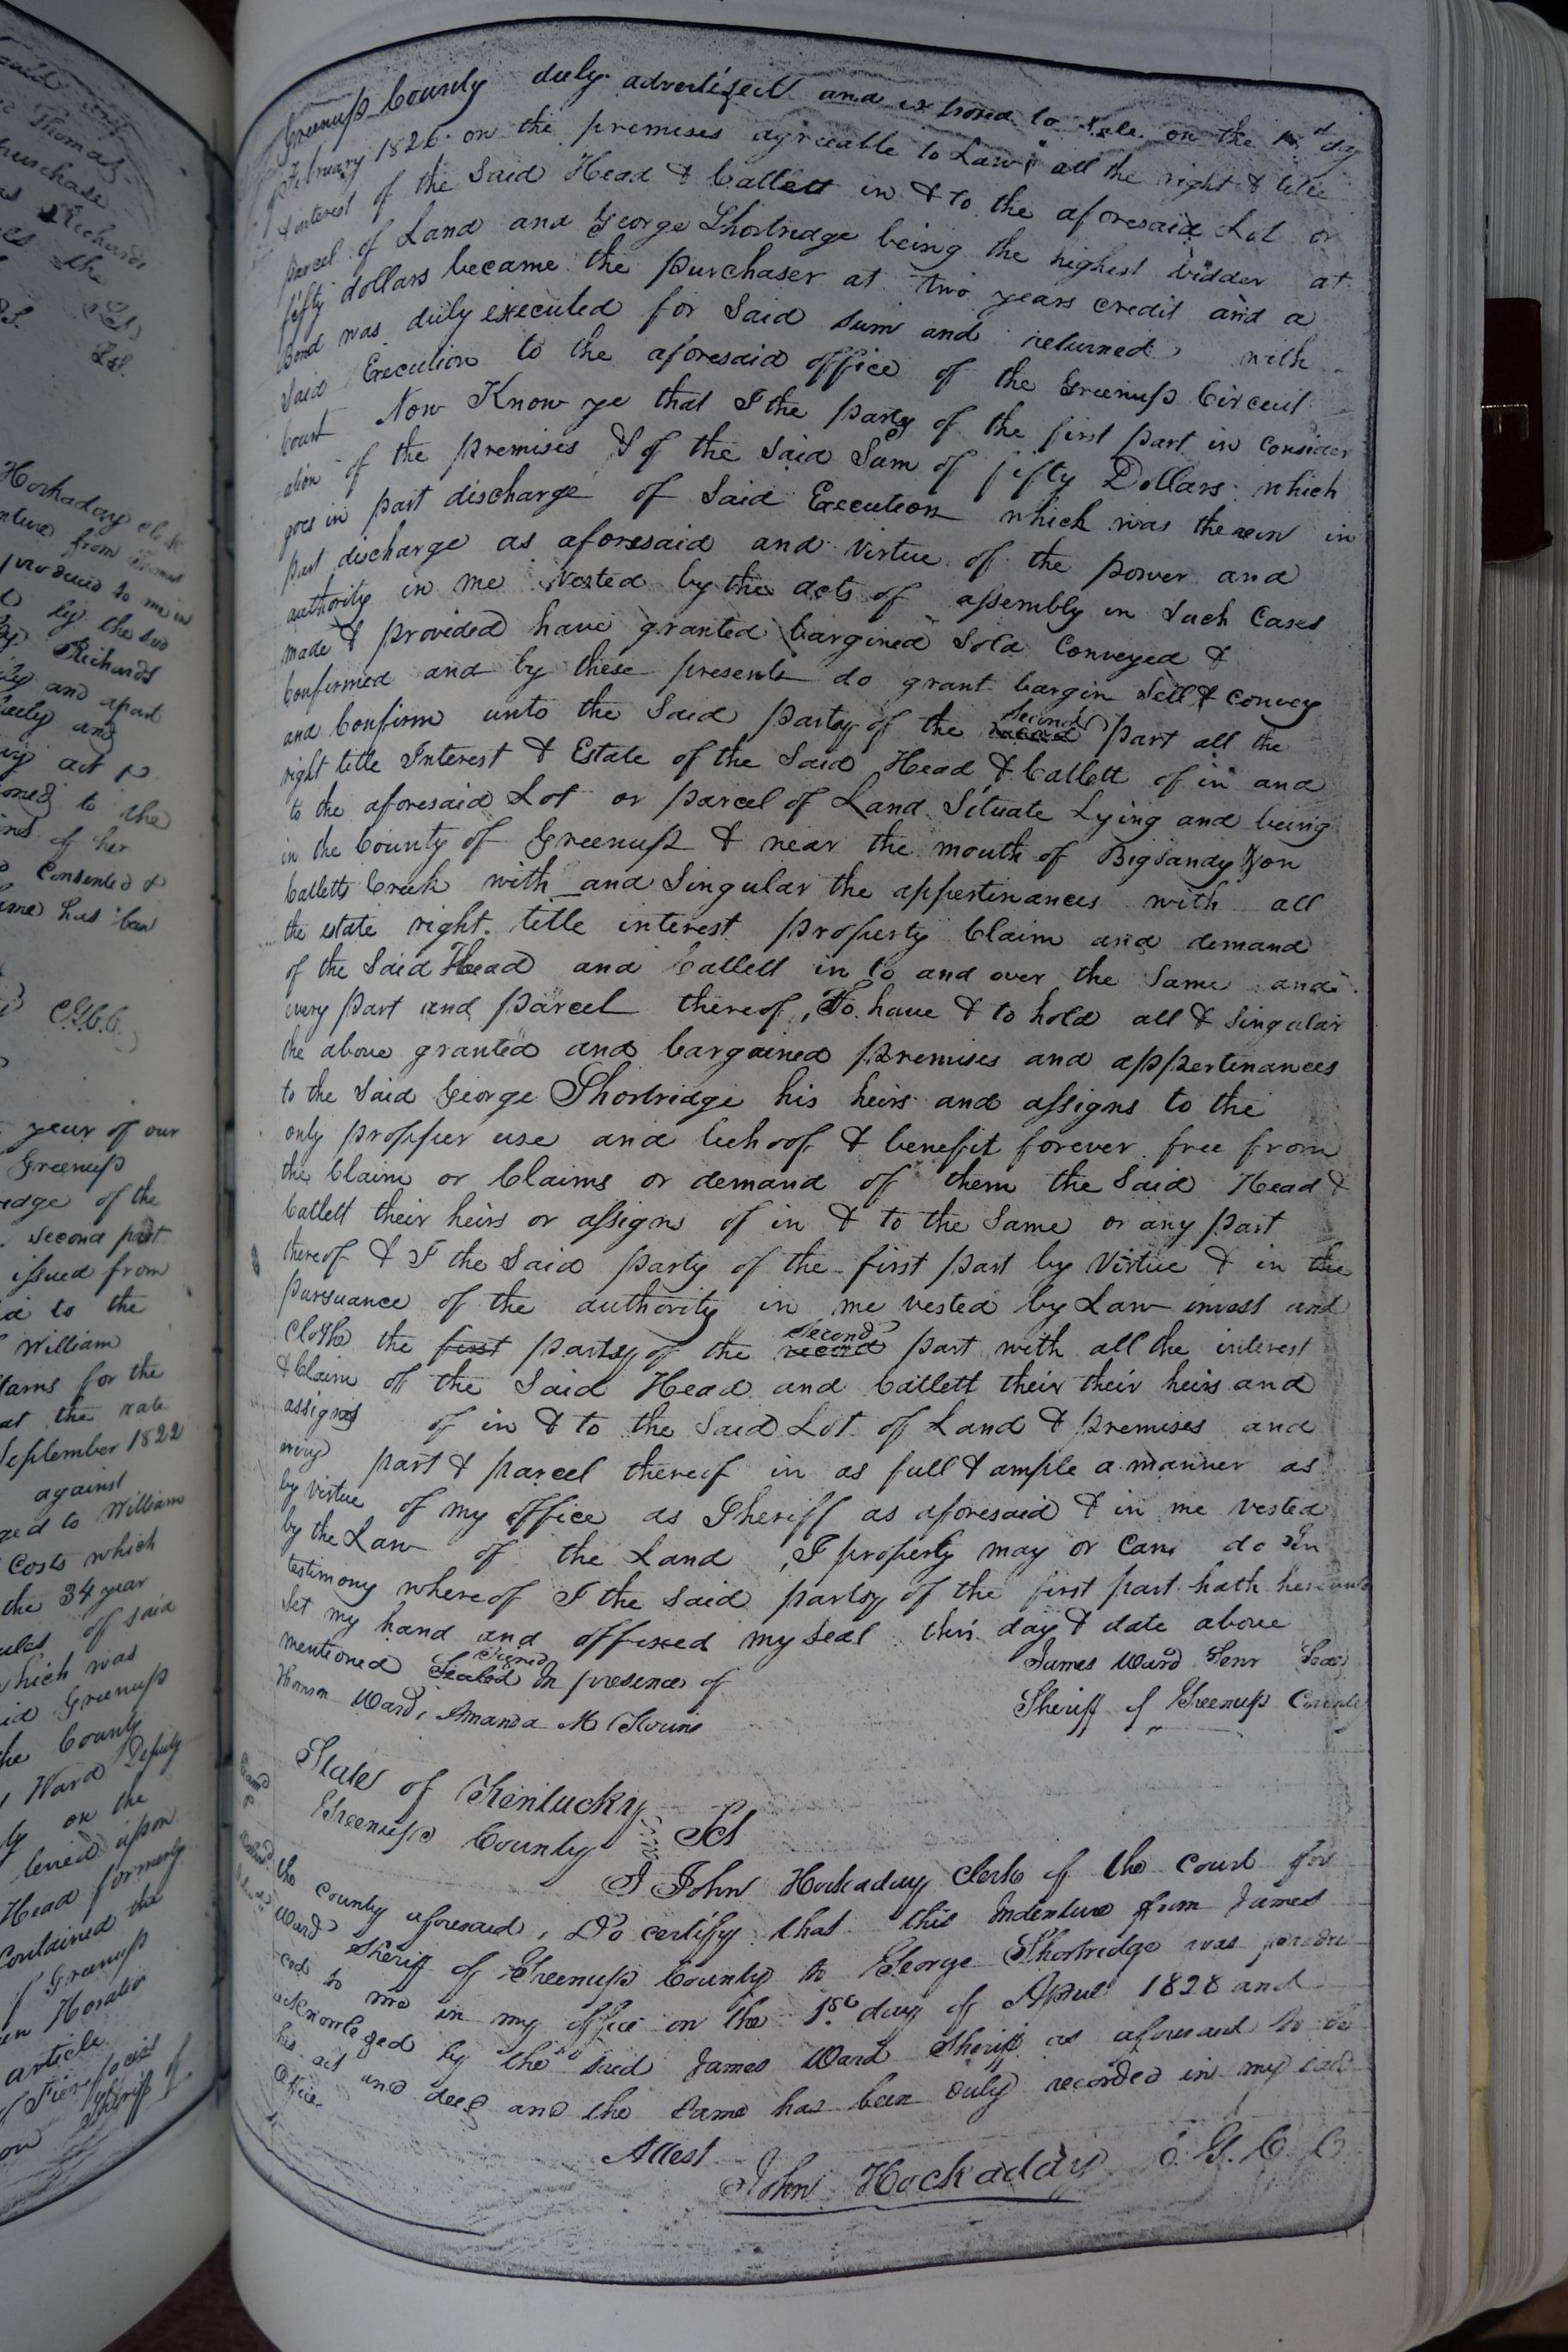 Thomas
purchase
Richards
the
Hockaday clerk
from
produced to me in
by the
Richards
and apart
act
to the
of her
Consented &
has been
year of our
Greenup
of the
second part
issued from
to the
William
for the
at the rate
September 1822
against
to William
Costs which
the 34 year
of said
which was
Greenup
the County
Ward Deputy
on the
levied upon
Head formerly
contained the
of Greenup
Horatio
article
of Fierifacias
Sheriff of
Greenup County duly advertised and exposed to sale on the day
February 1826 on the premises agreeable to Law all the right & title
& interest of the Said Head & Catlett in & to the aforesaid Lot or
parcel of Land and George Shortridge being the highest bidder at
fifty dollars became the purchaser at two years credit and a
Bond was duly executed for Said sum and returned with
Said Execution to the aforesaid office of the Greenup Circuit
Court Now Know ye that I the party of the first part in consider
ation of the premises & of the Said Sum of fifty Dollars which
goes in part discharge of Said Execution which was therein in
part discharge as aforesaid and virtue of the power and
authority in me vested by the acts of assembly in Such Cases
made & provided have granted bargined Sold Conveyed &
Confirmed and by these presents do grant bargin Sell & convey
and Confirm unto the Said party of the second part all the
right title Interest & Estate of the Said Head & Catlett of in and
to the aforesaid Lot or parcel of Land Situate Lying and being
in the County of Greenup & near the mouth of Bigsandy & on
Catletts Creek with and Singular the appertinances with all
the estate right title interest property Claim and demand
of the Said Head and Catlett in to and over the Same and
every part and parcel thereof, To have & to hold all & Singular
the above granted and bargained premises and appertinances
to the Said George Shortridge his heirs and assigns to the
only propper use and behoof & benefit forever free from
the Claim or Claims or demand of them the Said Head &
Catlett their heirs or assigns of in & to the Same or any part
thereof & I the Said party of the first part by Virtue & in the
pursuance of the authority in me vested by Law invest and
Clothe the first party of the second part with all the interest
& Claim of the Said Head and Catlett their their heirs and
assigns of in & to the Said Lot of Land & premises and
every part & parcel thereof in as full & ample a manner as
by virtue of my office as Sheriff as aforesaid & in me vested
by the Law of the Land, I property may or can do In
testimony whereof I the Said party of the first part hath hereunto
Set my hand and affixed my Seal this day & date above
mentioned Signed Sealed In presence of James Ward Senr Seal
Thomson Ward, Amanda M Sheriff of Greenup County
State of Kentucky
Greenup County Sct
I John Hockaday Clerk of the Court for
the County aforesaid, Do certify that this Indenture from James
Ward Sheriff of Greenup County to George Shortridge was produ
ced to me in my office on the 1st day of April 1828 and
acknowledged by the said James Ward Sheriff as aforesaid to be
his act and deed and the same has been duly recorded in my said
Office
Attest
John Hockaday C. G. C. C